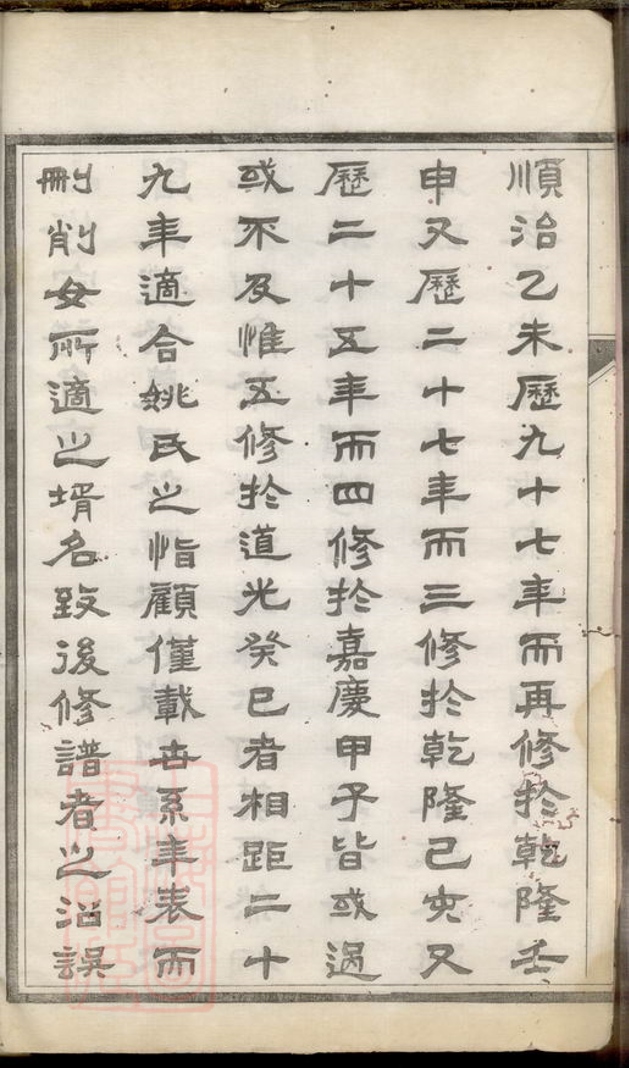 順治乙未歷九十七年而再修於乾隆壬
申又歷二十七年而三修於乾隆己亥又
歷二十五年而四修於嘉慶甲子皆或過
或不及惟五修於道光癸巳者相距二十
九年適合姚氏之恉顧僅載世系年表而
刪削女所適之壻名致後修譜者之沿誤